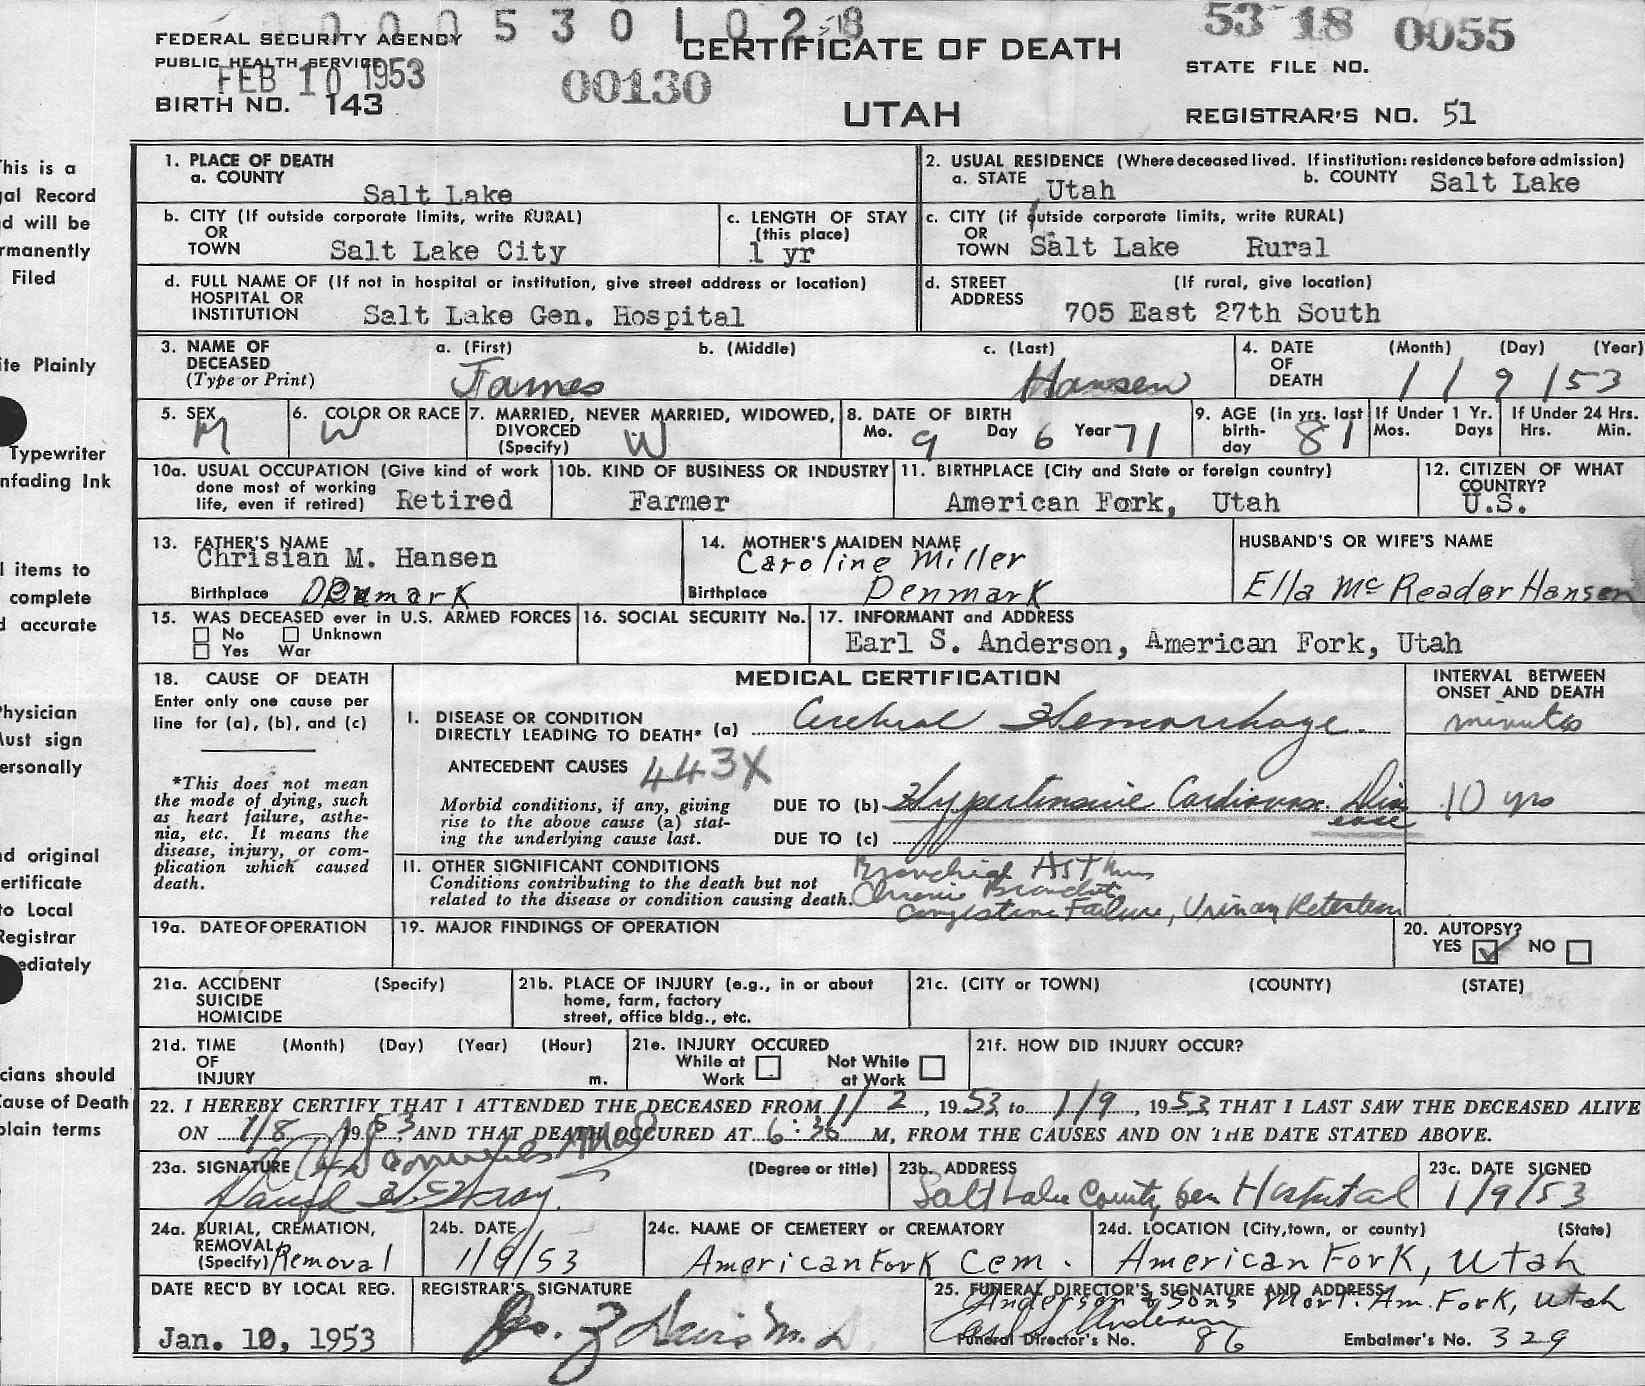 000530102818
53 18 0055
FEDERAL SECURITY AGENCY
PUBLIC HEALTH SERVICE
FEB 10 1953
BIRTH NO. 143
00130
CERTIFICATE OF DEATH
UTAH
STATE FILE NO.
REGISTRAR'S NO. 51
This is a
gal Record
d will be
rmanently
Filed
ite Plainly
Typewriter
nfading Ink
l items to
complete
d accurate
Physician
Must sign
ersonally
nd original
ertificate
to Local
Registrar
ediately
cians should
Cause of Death
plain terms
1. PLACE OF DEATH
a. COUNTY
Salt Lake
2. USUAL RESIDENCE (Where deceased lived. If institution: residence before admission)
a. STATE Utah b. COUNTY Salt Lake
b. CITY (If outside corporate limits, write RURAL)
OR
TOWN Salt Lake City
c. LENGTH OF STAY
(this place)
1 yr
c. CITY (if outside corporate limits, write RURAL)
OR
TOWN Salt Lake Rural
d. FULL NAME OF (If not in hospital or institution, give street address or location)
HOSPITAL OR
INSTITUTION Salt Lake Gen. Hospital
d. STREET (If rural, give location)
ADDRESS
705 East 27th South
3. NAME OF a. (First) b. (Middle) c. (Last)
DECEASED
(Type or Print) James Hansen
4. DATE (Month) (Day) (Year)
OF
DEATH 1 / 9 / 53
5. SEX
M
6. COLOR OR RACE
W
7. MARRIED, NEVER MARRIED, WIDOWED,
DIVORCED
(Specify) W
8. DATE OF BIRTH
Mo. 9 Day 6 Year 71
9. AGE (in yrs. last
birth-
day 81
If Under 1 Yr.
Mos. Days
If Under 24 Hrs.
Hrs. Min.
10a. USUAL OCCUPATION (Give kind of work
done most of working
life, even if retired) Retired
10b. KIND OF BUSINESS OR INDUSTRY
Farmer
11. BIRTHPLACE (City and State or foreign country)
American Fork, Utah
12. CITIZEN OF WHAT
COUNTRY?
U.S.
13. FATHER'S NAME
Chrisian M. Hansen
Birthplace Denmark
14. MOTHER'S MAIDEN NAME
Caroline Miller
Birthplace Denmark
HUSBAND'S OR WIFE'S NAME
Ella McReader Hansen
15. WAS DECEASED ever in U.S. ARMED FORCES
No Unknown
Yes War
16. SOCIAL SECURITY No.
17. INFORMANT and ADDRESS
Earl S. Anderson, American Fork, Utah
18. CAUSE OF DEATH
Enter only one cause per
line for (a), (b), and (c)
*This does not mean
the mode of dying, such
as heart failure, asthe-
nia, etc. It means the
disease, injury, or com-
plication which caused
death.
MEDICAL CERTIFICATION
INTERVAL BETWEEN
ONSET AND DEATH
I. DISEASE OR CONDITION
DIRECTLY LEADING TO DEATH* (a) Cerebral Hemorrhage
minutes
ANTECEDENT CAUSES 443X
Morbid conditions, if any, giving
rise to the above cause (a) stat-
ing the underlying cause last.
DUE TO (b) Hypertensive Cardiovas. Dis
ease
10 yrs
DUE TO (c)
II. OTHER SIGNIFICANT CONDITIONS
Conditions contributing to the death but not
related to the disease or condition causing death.
Bronchial Asthma
Chronic Bronchitis
Congestive Failure, Urinary Retention
19a. DATE OF OPERATION
19. MAJOR FINDINGS OF OPERATION
20. AUTOPSY?
YES NO
21a. ACCIDENT (Specify)
SUICIDE
HOMICIDE
21b. PLACE OF INJURY (e.g., in or about
home, farm, factory
street, office bldg., etc.
21c. (CITY or TOWN) (COUNTY) (STATE)
21d. TIME (Month) (Day) (Year) (Hour)
OF
INJURY m.
21e. INJURY OCCURED
While at Not While
Work at Work
21f. HOW DID INJURY OCCUR?
22. I HEREBY CERTIFY THAT I ATTENDED THE DECEASED FROM 1/2, 1953, to 1/9, 1953, THAT I LAST SAW THE DECEASED ALIVE
ON 1/8 1953, AND THAT DEATH OCCURED AT 6:36 M, FROM THE CAUSES AND ON THE DATE STATED ABOVE.
23a. SIGNATURE (Degree or title)
David
23b. ADDRESS
Salt Lake County Gen Hospital
23c. DATE SIGNED
1/9/53
24a. BURIAL, CREMATION,
REMOVAL
(Specify) Removal
24b. DATE
1/9/53
24c. NAME OF CEMETERY or CREMATORY
American Fork Cem.
24d. LOCATION (City, town, or county) (State)
American Fork, Utah
DATE REC'D BY LOCAL REG.
Jan. 10, 1953
REGISTRAR'S SIGNATURE
Davis M.D
25. FUNERAL DIRECTOR'S SIGNATURE AND ADDRESS
Anderson & Sons Mort. Am. Fork, Utah
Anderson
Funeral Director's No. 86 Embalmer's No. 329